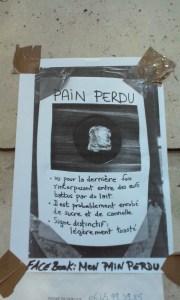 PAIN PERDU
• vu pour la dernière fois
s'interposant entre des œufs
battus par du lait.
• Il est probablement enrobé
de sucre et de cannelle.
• Signe distinctif :
légèrement toasté
FACEBOOK: MON PAIN PERDU